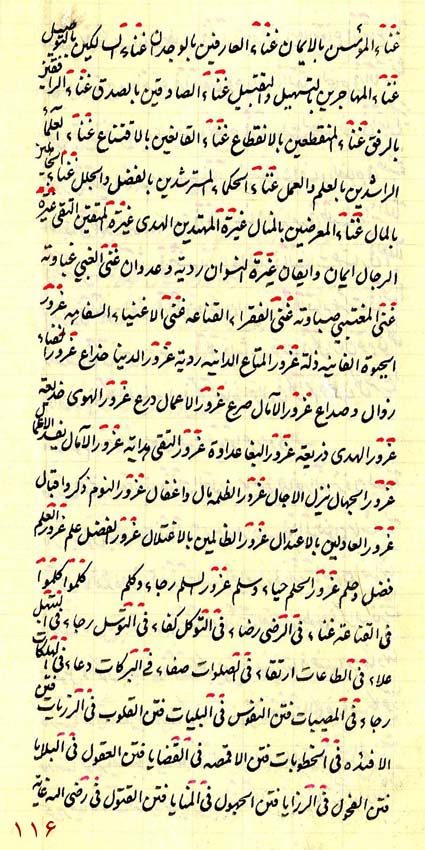 غناء المؤمنين بالايمان غناء العارفين بالوجدان غناء السالكين بالتوصيل
غناء المهاجرين بالتسهيل والتقتيل غناء الصادقين بالصدق غناء الرافقين
بالرفق غناء المنقطعين بالانقطاع غناء القانعين بالاقتناع غناء العلماء
الراشدين بالعلم والعمل غناء الحكماء المسترشدين بالفضل والجلل غناء
بالمال غناء المعرضين بالمنال غيرة المهتدين الهدى غيرة المتقين التقى غيرة
الرجال ايمان وايقان غيرة النسوان ردية وعدوان غنى الغبي غباوته
غنى المغتبي صباوته غنى الفقراء القناعه غنى الاغنياء السفاهه غرور
الحيوة الفانيه ذلة غرور المتاع الدانيه ردية غرور الدنيا خداع غرور
زوال وصداع غرور الآمال صرع غرور الاعمال درع غرور الهوى خديعة
غرور الهدى ذريعة غرور البغا عداوة غرور التقى هداية غرور الآمال
غرور الجهال نزيل الاجال غرور الظلمه بال واغفال غرور النوم ذكر واقبال
غرور العادلين بالاعتدال غرور الظالمين بالاغتلال غرور الفضل علم غرور العلم
فضل وحلم غرور الحلم حياء وسلم غرور السلم رجاء وكلم كلموا كلموا
فى القناعة غناء فى الرضى رضاء فى التوكل كفاء فى التوسل رجاء فى
علاء فى الطاعات ارتقاء فى الصلوات صفاء فى البركات دعاء فى الهلكات
رجاء فى المصيبات فتن النفوس فى البليات فتن القلوب فى الرزيات فتن
الافئده فى الخطوبات فتن الاقمصه فى القضايا فتن العقول فى البلايا
فتن الفحول فى الرزايا فتن الجهول فى المنايا فتن القتول فى رضى الله غاية
١١٦